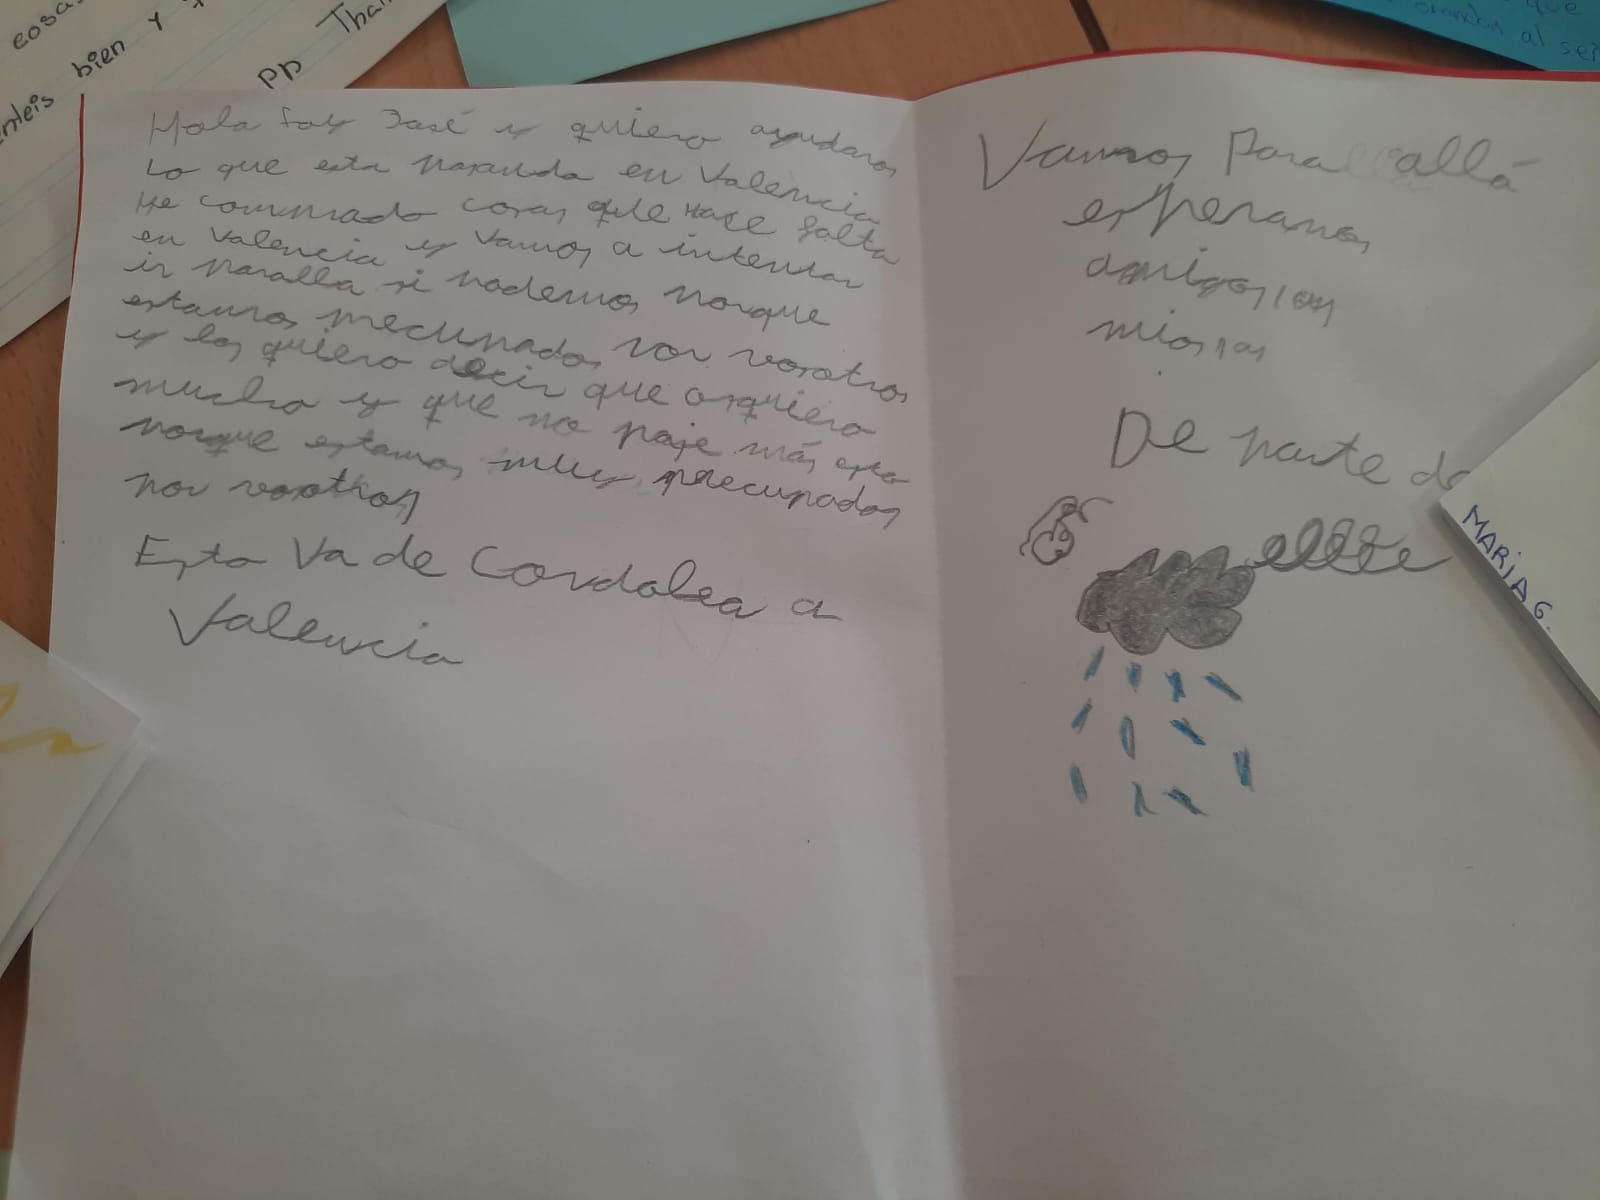 cosas
bien y
nteis
pp Than
que
al señ
Hola soy José y quiero ayudaros
Lo que esta pasando en Valencia
He comprado cosas que Hace falta
en Valencia y Vamos a intentar
ir paralla si podemos porque
estamos precupados por vosotros
y los quiero decir que osquiero
mucho y que no paje más esto
porque estamos muy precupados
por vosotros
Esto Va de Cordoba a
Valencia
Vamos Para allá
esperamos
amigos/as
mios/as
De parte de
MARIA G.